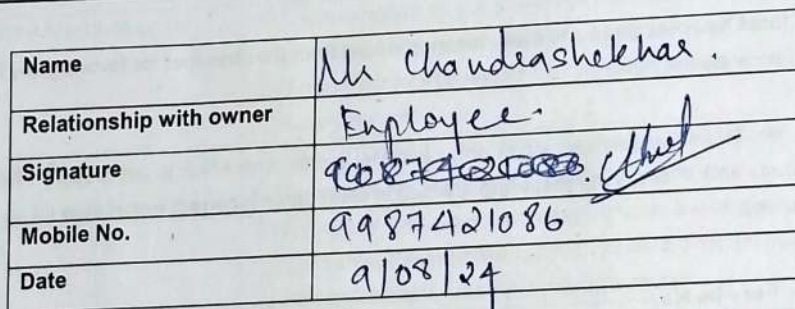 Name Mr Chandrashekhar.
Relationship with owner Employee.
Signature
Mobile No. 9987421086
Date 9/08/24